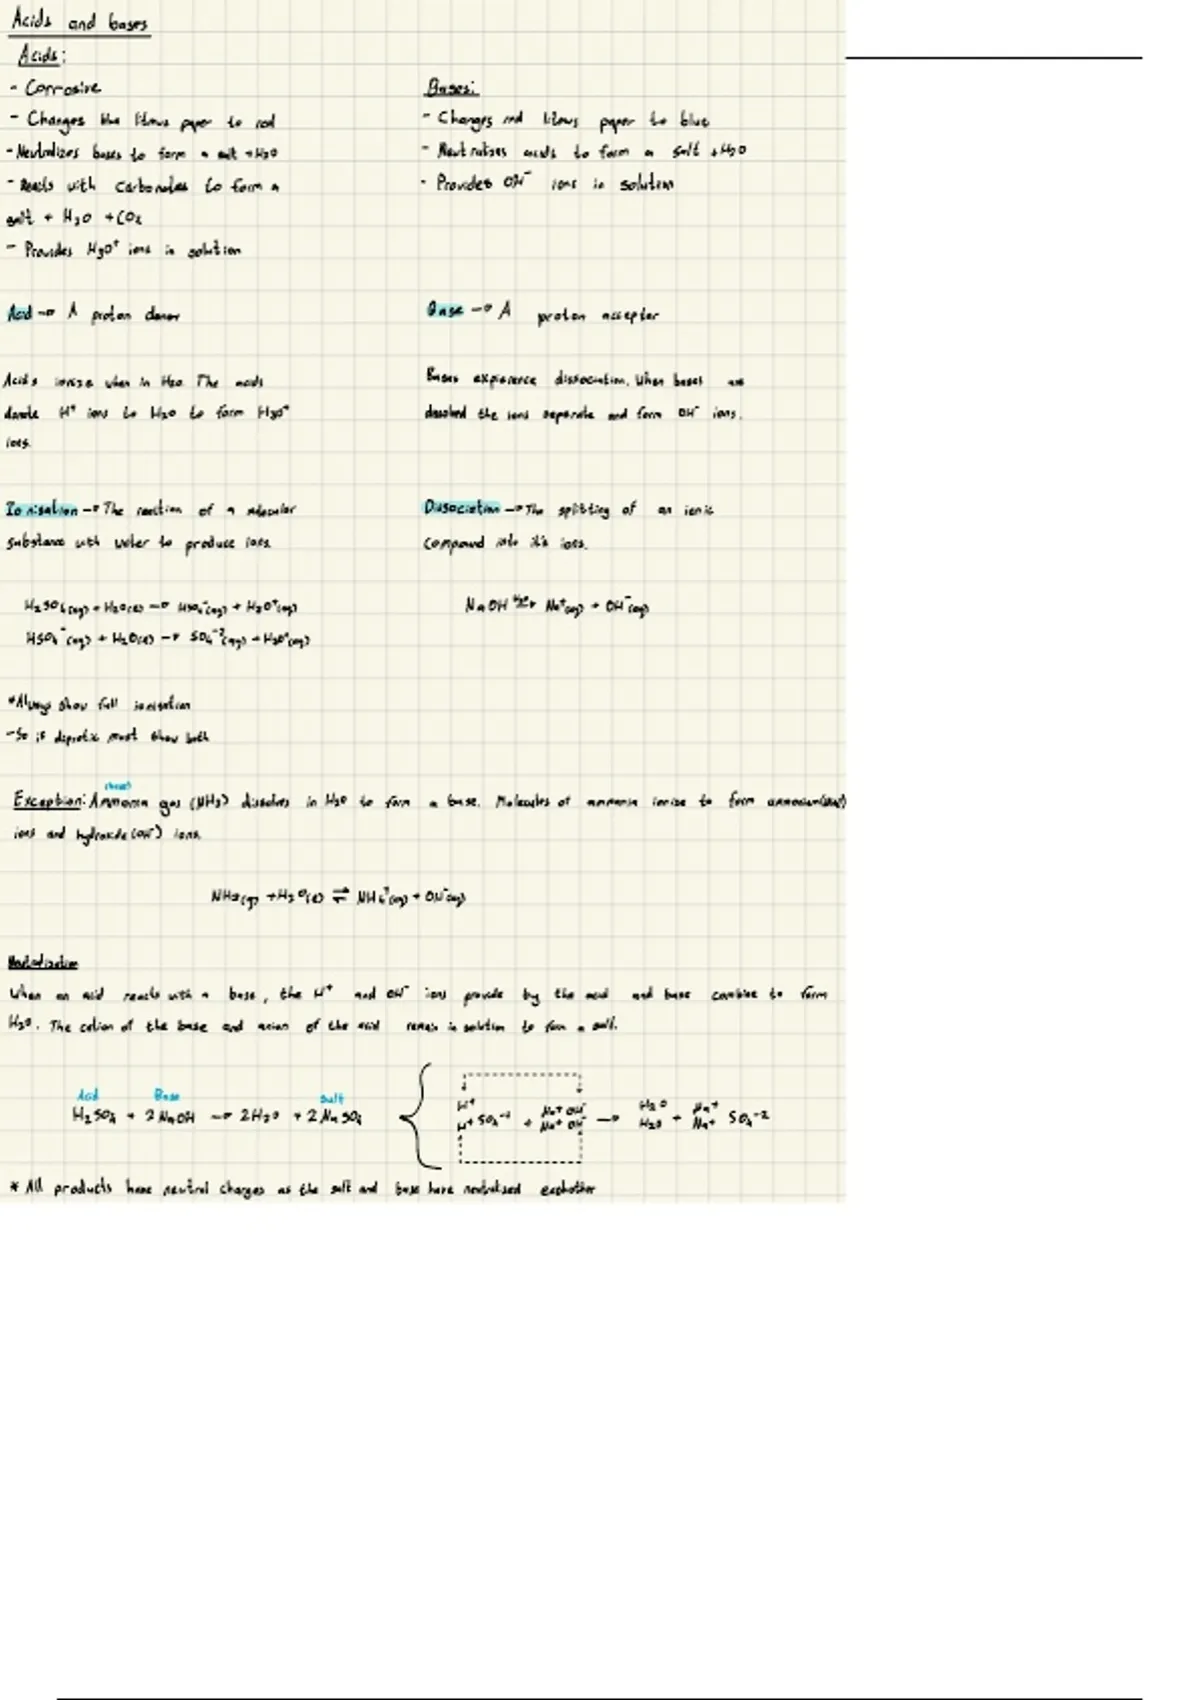 Acids and bases
Acids:
- Corrosive
- Changes blue litmus paper to red
- Neutralizes bases to form a salt + H2O
- Reacts with carbonates to form a
salt + H2O + CO2
- Provides H3O+ ions in solution
Bases:
- Changes red litmus paper to blue
- Neutralises acids to form a salt + H2O
- Provides OH- ions in solution
Acid → A proton donor
Base → A proton acceptor
Acids ionise when in H2O. The acids
donate H+ ions to H2O to form H3O+
ions.
Bases experience dissociation. When bases are
dissolved the ions seperate and form OH- ions.
Ionisation → The reaction of a molecular
substance with water to produce ions.
Dissociation → The splitting of an ionic
compound into it's ions.
H2SO4(aq) + H2O(l) → HSO4-(aq) + H3O+(aq)
HSO4-(aq) + H2O(l) → SO4-2(aq) + H3O+(aq)
NaOH → Na+(aq) + OH-(aq)
*Always show full ionisation
- So if diprotic must show both
Exception: Ammonia gas (NH3) dissolves in H2O to form a base. Molecules of ammonia ionise to form ammonium(NH4+)
ions and hydroxide (OH-) ions.
NH3(g) + H2O(l) ⇌ NH4+(aq) + OH-(aq)
Neutralization
When an acid reacts with a base, the H+ and OH- ions provide by the acid and base combine to form
H2O. The cation of the base and anion of the acid remain in solution to form a salt.
Acid Base Salt
H2SO4 + 2NaOH → 2H2O + 2NaSO4
H+ Na+ OH- H2O Na+
H+ SO4-2 + Na+ OH- → H2O + Na+ SO4-2
* All products have neutral charges as the salt and base have neutralised eachother